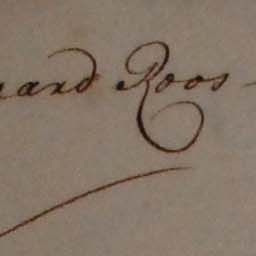 uard Roos